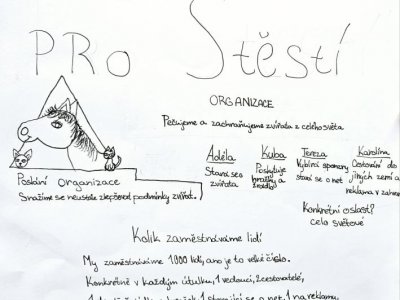 PRO Štěstí
ORGANIZACE
Pečujeme a zachraňujeme zvířata z celého světa
Adéla
Stará se o
zvířata
Kuba
Poskytuje
hračky a
Tereza
Vybírá sponzory
stará se o net
Karolína
Cestování do
jiných zemí a
reklama v zahra
Poslání organizace
Snažíme se neustále zlepšovat podmínky zvířat.
Konkrétní oslasti?
celo světové
Kolik zaměstnáváme lidí
My zaměstnáváme 1000 lidí, ano je to velké číslo.
Konkrétně v každým útulku, 1 vedoucí, 2 cestovatelé,
1 starající se o net, 1 na reklamu,